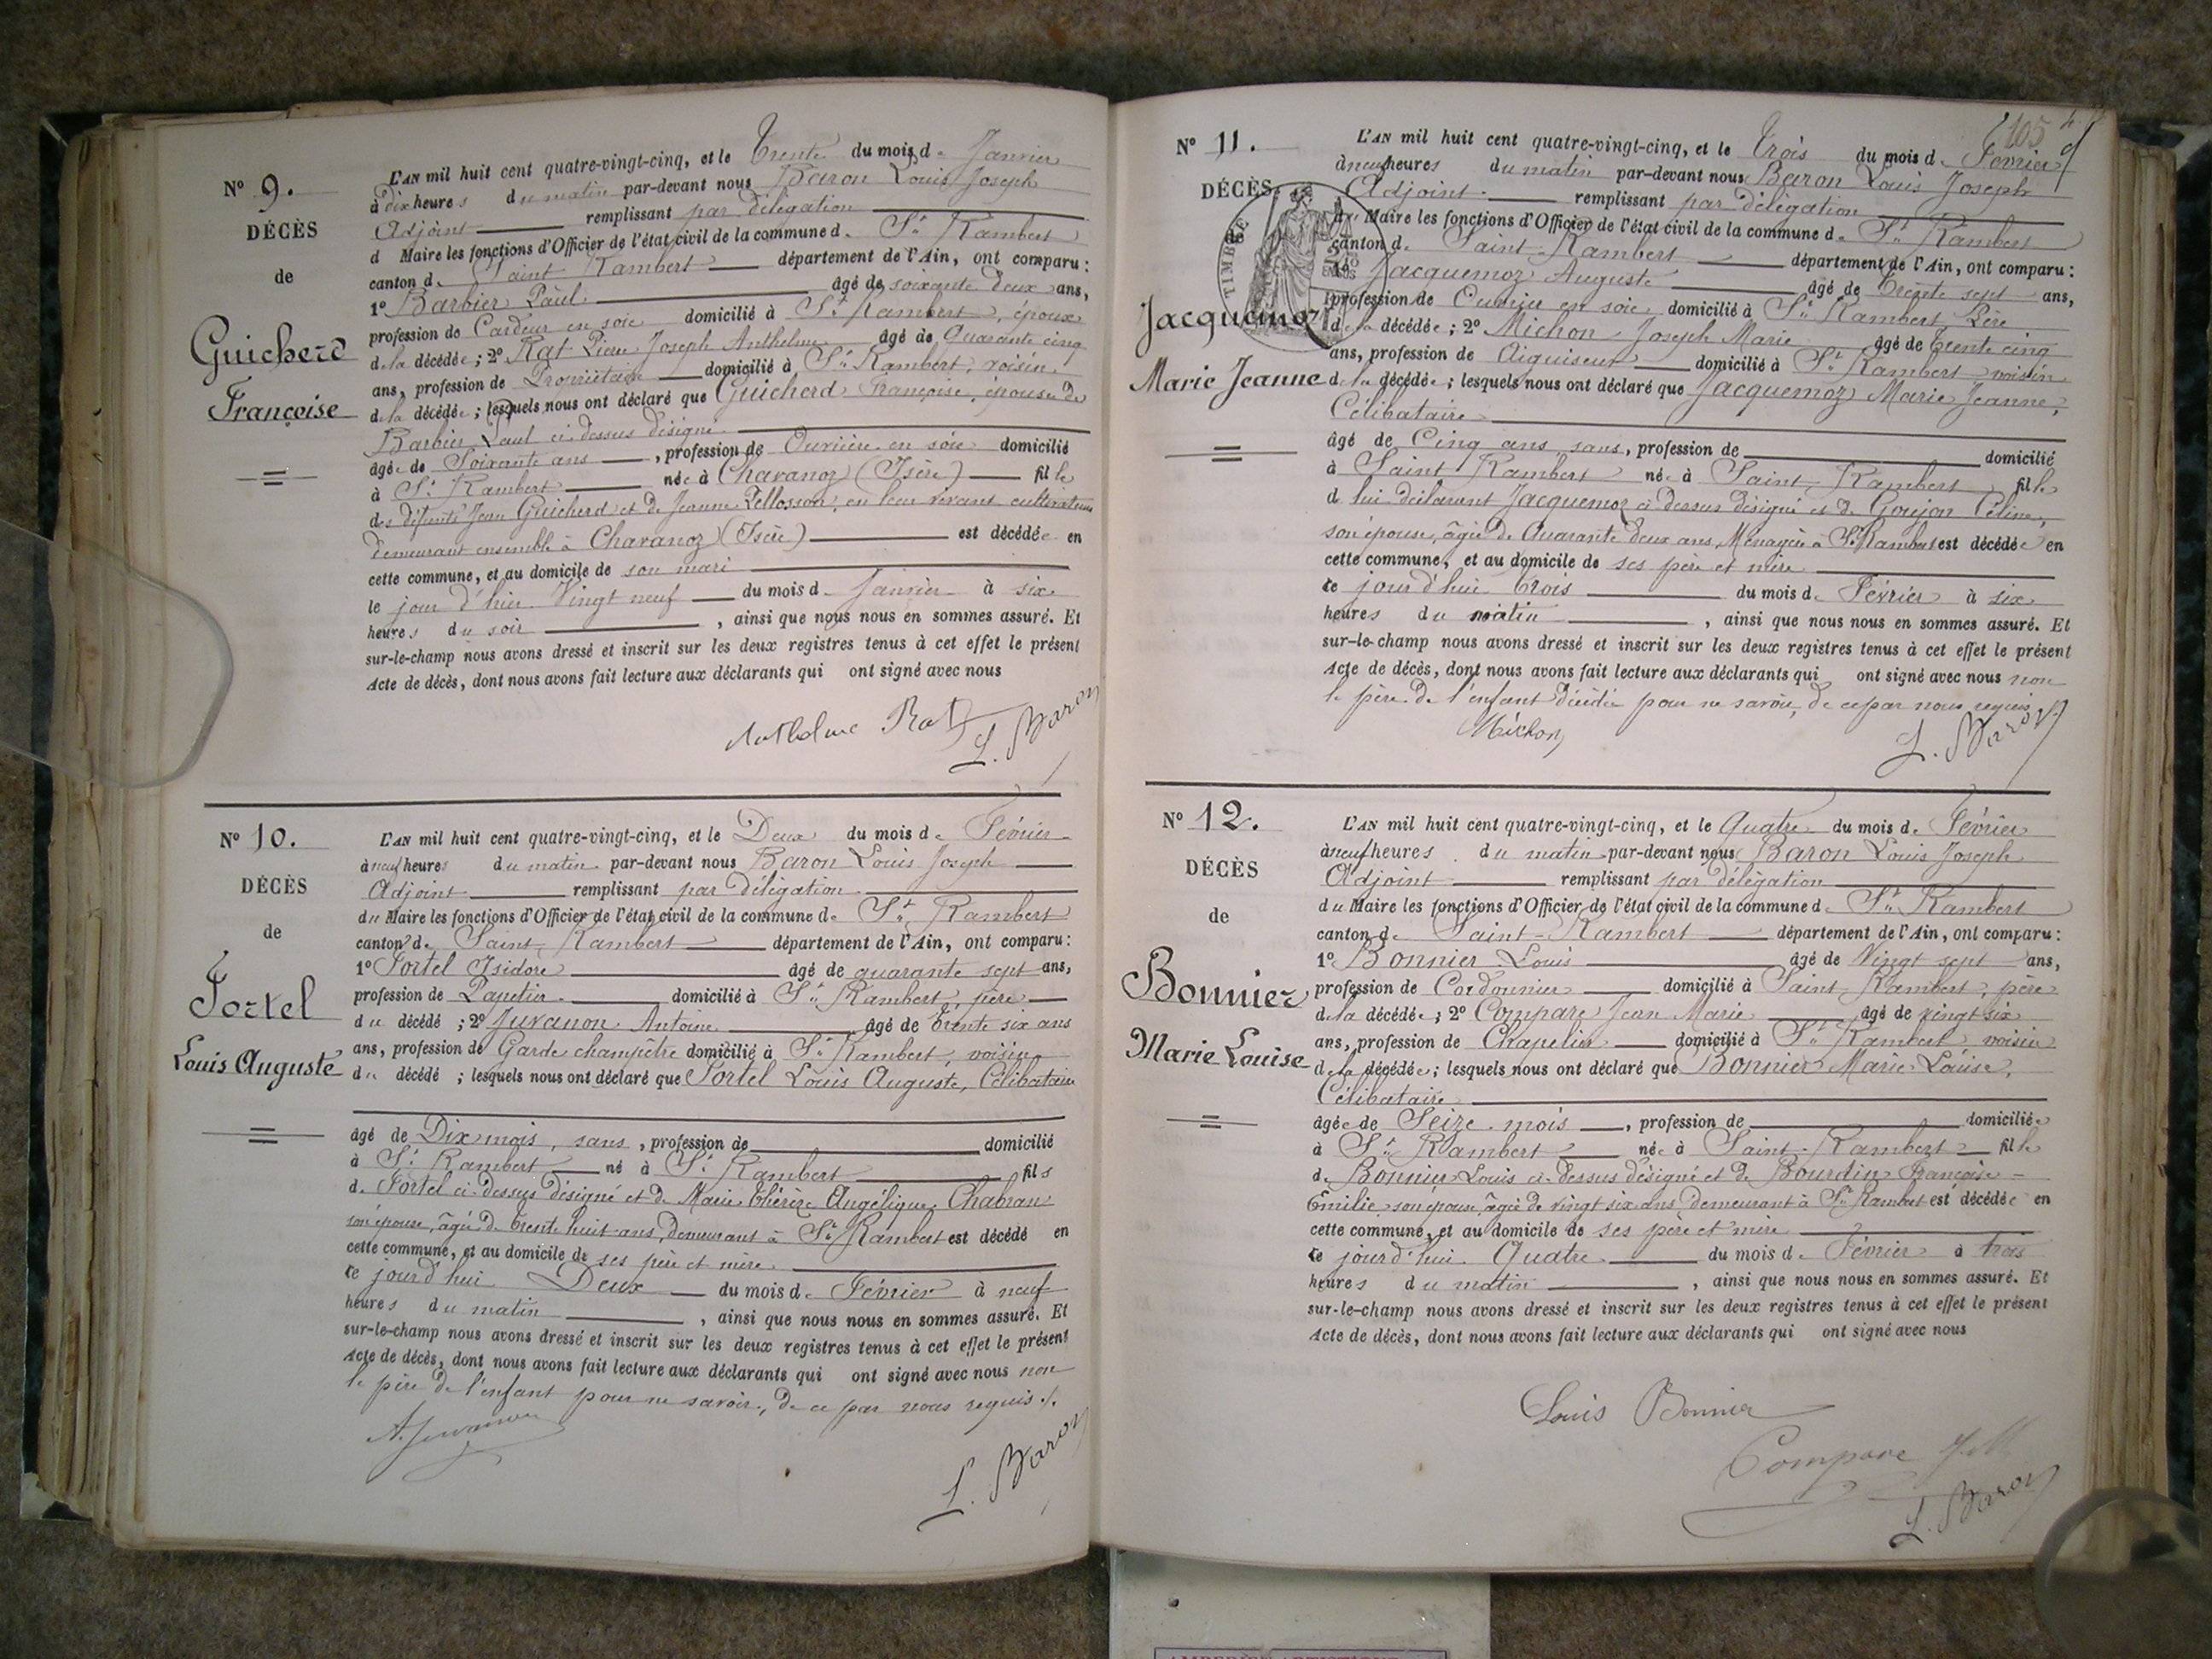 N° 9.
DÉCÈS
de
Guicherd
Françoise
L'AN mil huit cent quatre-vingt-cinq, et le Trente du mois de Janvier
à dix heures du matin par-devant nous Baron Louis Joseph
Adjoint remplissant par délégation
d Maire les fonctions d'Officier de l'état civil de la commune de St Rambert
canton de Saint Rambert département de l'Ain, ont comparu :
1° Barbier Paul âgé de soixante deux ans,
profession de Cardeur en soie domicilié à St Rambert, époux
de la décédée ; 2° Rat Pierre Joseph Anthelme âgé de Quarante cinq
ans, profession de Propriétaire domicilié à St Rambert, voisin
de la décédée ; lesquels nous ont déclaré que Guicherd Françoise, épouse de
Barbier Paul ci-dessus désigné
âgée de Soixante ans, profession de Ouvrière en soie domicilié
à St Rambert née à Chavanoz (Isère) fille
des défunts Jean Guicherd et de Jeanne Pellosson, en leur vivant cultivateurs
demeurant ensemble à Chavanoz (Isère) est décédée en
cette commune, et au domicile de son mari
le jour d'hier Vingt neuf du mois de Janvier à six
heures du soir, ainsi que nous nous en sommes assuré. Et
sur-le-champ nous avons dressé et inscrit sur les deux registres tenus à cet effet le présent
Acte de décès, dont nous avons fait lecture aux déclarants qui ont signé avec nous
Anthelme Rat
L. Baron
N° 10.
DÉCÈS
de
Fortel
Louis Auguste
L'AN mil huit cent quatre-vingt-cinq, et le Deux du mois de Février
à neuf heures du matin par-devant nous Baron Louis Joseph
Adjoint remplissant par délégation
du Maire les fonctions d'Officier de l'état civil de la commune de St Rambert
canton de Saint Rambert département de l'Ain, ont comparu :
1° Fortel Isidore âgé de quarante sept ans,
profession de Papetier domicilié à St Rambert, père
du décédé ; 2° Juvanon Antoine âgé de trente six ans
ans, profession de Garde champêtre domicilié à St Rambert, voisin
du décédé ; lesquels nous ont déclaré que Fortel Louis Auguste, Célibataire
âgé de Dix mois, sans, profession de domicilié
à St Rambert né à St Rambert fils
de Fortel ci-dessus désigné et de Marie Thérèze Angélique Chabran
son épouse, âgée de trente huit ans, demeurant à St Rambert est décédé en
cette commune, et au domicile de ses père et mère
ce jourd'hui Deux du mois de Février à neuf
heures du matin, ainsi que nous nous en sommes assuré. Et
sur-le-champ nous avons dressé et inscrit sur les deux registres tenus à cet effet le présent
Acte de décès, dont nous avons fait lecture aux déclarants qui ont signé avec nous non
le père de l'enfant pour ne savoir, de ce par nous requis ./.
A. Juvanon
L. Baron
105
N° 11.
DÉCÈS
de
Jacquemoz
Marie Jeanne
TIMBRE
L'AN mil huit cent quatre-vingt-cinq, et le Trois du mois de Février
à neuf heures du matin par-devant nous Baron Louis Joseph
Adjoint remplissant par délégation
du Maire les fonctions d'Officier de l'état civil de la commune de St Rambert
canton de Saint Rambert département de l'Ain, ont comparu :
1° Jacquemoz Auguste âgé de Trente sept ans,
profession de Ouvrier en soie domicilié à St Rambert Père
de la décédée ; 2° Michon Joseph Marie âgé de trente cinq
ans, profession de Aiguiseur domicilié à St Rambert voisin
de la décédée ; lesquels nous ont déclaré que Jacquemoz Marie Jeanne,
Célibataire
âgé de Cinq ans sans, profession de domicilié
à Saint Rambert née à Saint Rambert fille
de lui déclarant Jacquemoz ci dessus désigné et de Goujon Céline,
son épouse, âgée de Quarante deux ans, Ménagère à St Rambert est décédée en
cette commune, et au domicile de ses père et mère
ce jourd'hui trois du mois de Février à six
heures du matin, ainsi que nous nous en sommes assuré. Et
sur-le-champ nous avons dressé et inscrit sur les deux registres tenus à cet effet le présent
Acte de décès, dont nous avons fait lecture aux déclarants qui ont signé avec nous non
le père de l'enfant décédée pour ne savoir, de ce par nous requis
Michon
L. Baron
N° 12.
DÉCÈS
de
Bonnier
Marie Louise
L'AN mil huit cent quatre-vingt-cinq, et le Quatre du mois de Février
à neuf heures du matin par-devant nous Baron Louis Joseph
Adjoint remplissant par délégation
du Maire les fonctions d'Officier de l'état civil de la commune de St Rambert
canton de Saint-Rambert département de l'Ain, ont comparu :
1° Bonnier Louis âgé de Vingt sept ans,
profession de Cordonnier domicilié à Saint Rambert, père
de la décédée ; 2° Compare Jean Marie âgé de vingt six
ans, profession de Chapelier domicilié à St Rambert voisin
de la décédée ; lesquels nous ont déclaré que Bonnier Marie Louise,
Célibataire
âgée de Seize mois, profession de domiciliée
à St Rambert née à Saint-Rambert fille
de Bonnier Louis ci-dessus désigné et de Bourdin Françoise
Emilie son épouse, âgée de vingt six ans demeurant à St Rambert est décédée en
cette commune, et au domicile de ses père et mère
ce jourd'hui Quatre du mois de Février à trois
heures du matin, ainsi que nous nous en sommes assuré. Et
sur-le-champ nous avons dressé et inscrit sur les deux registres tenus à cet effet le présent
Acte de décès, dont nous avons fait lecture aux déclarants qui ont signé avec nous
Louis Bonnier
Compare J M
L. Baron